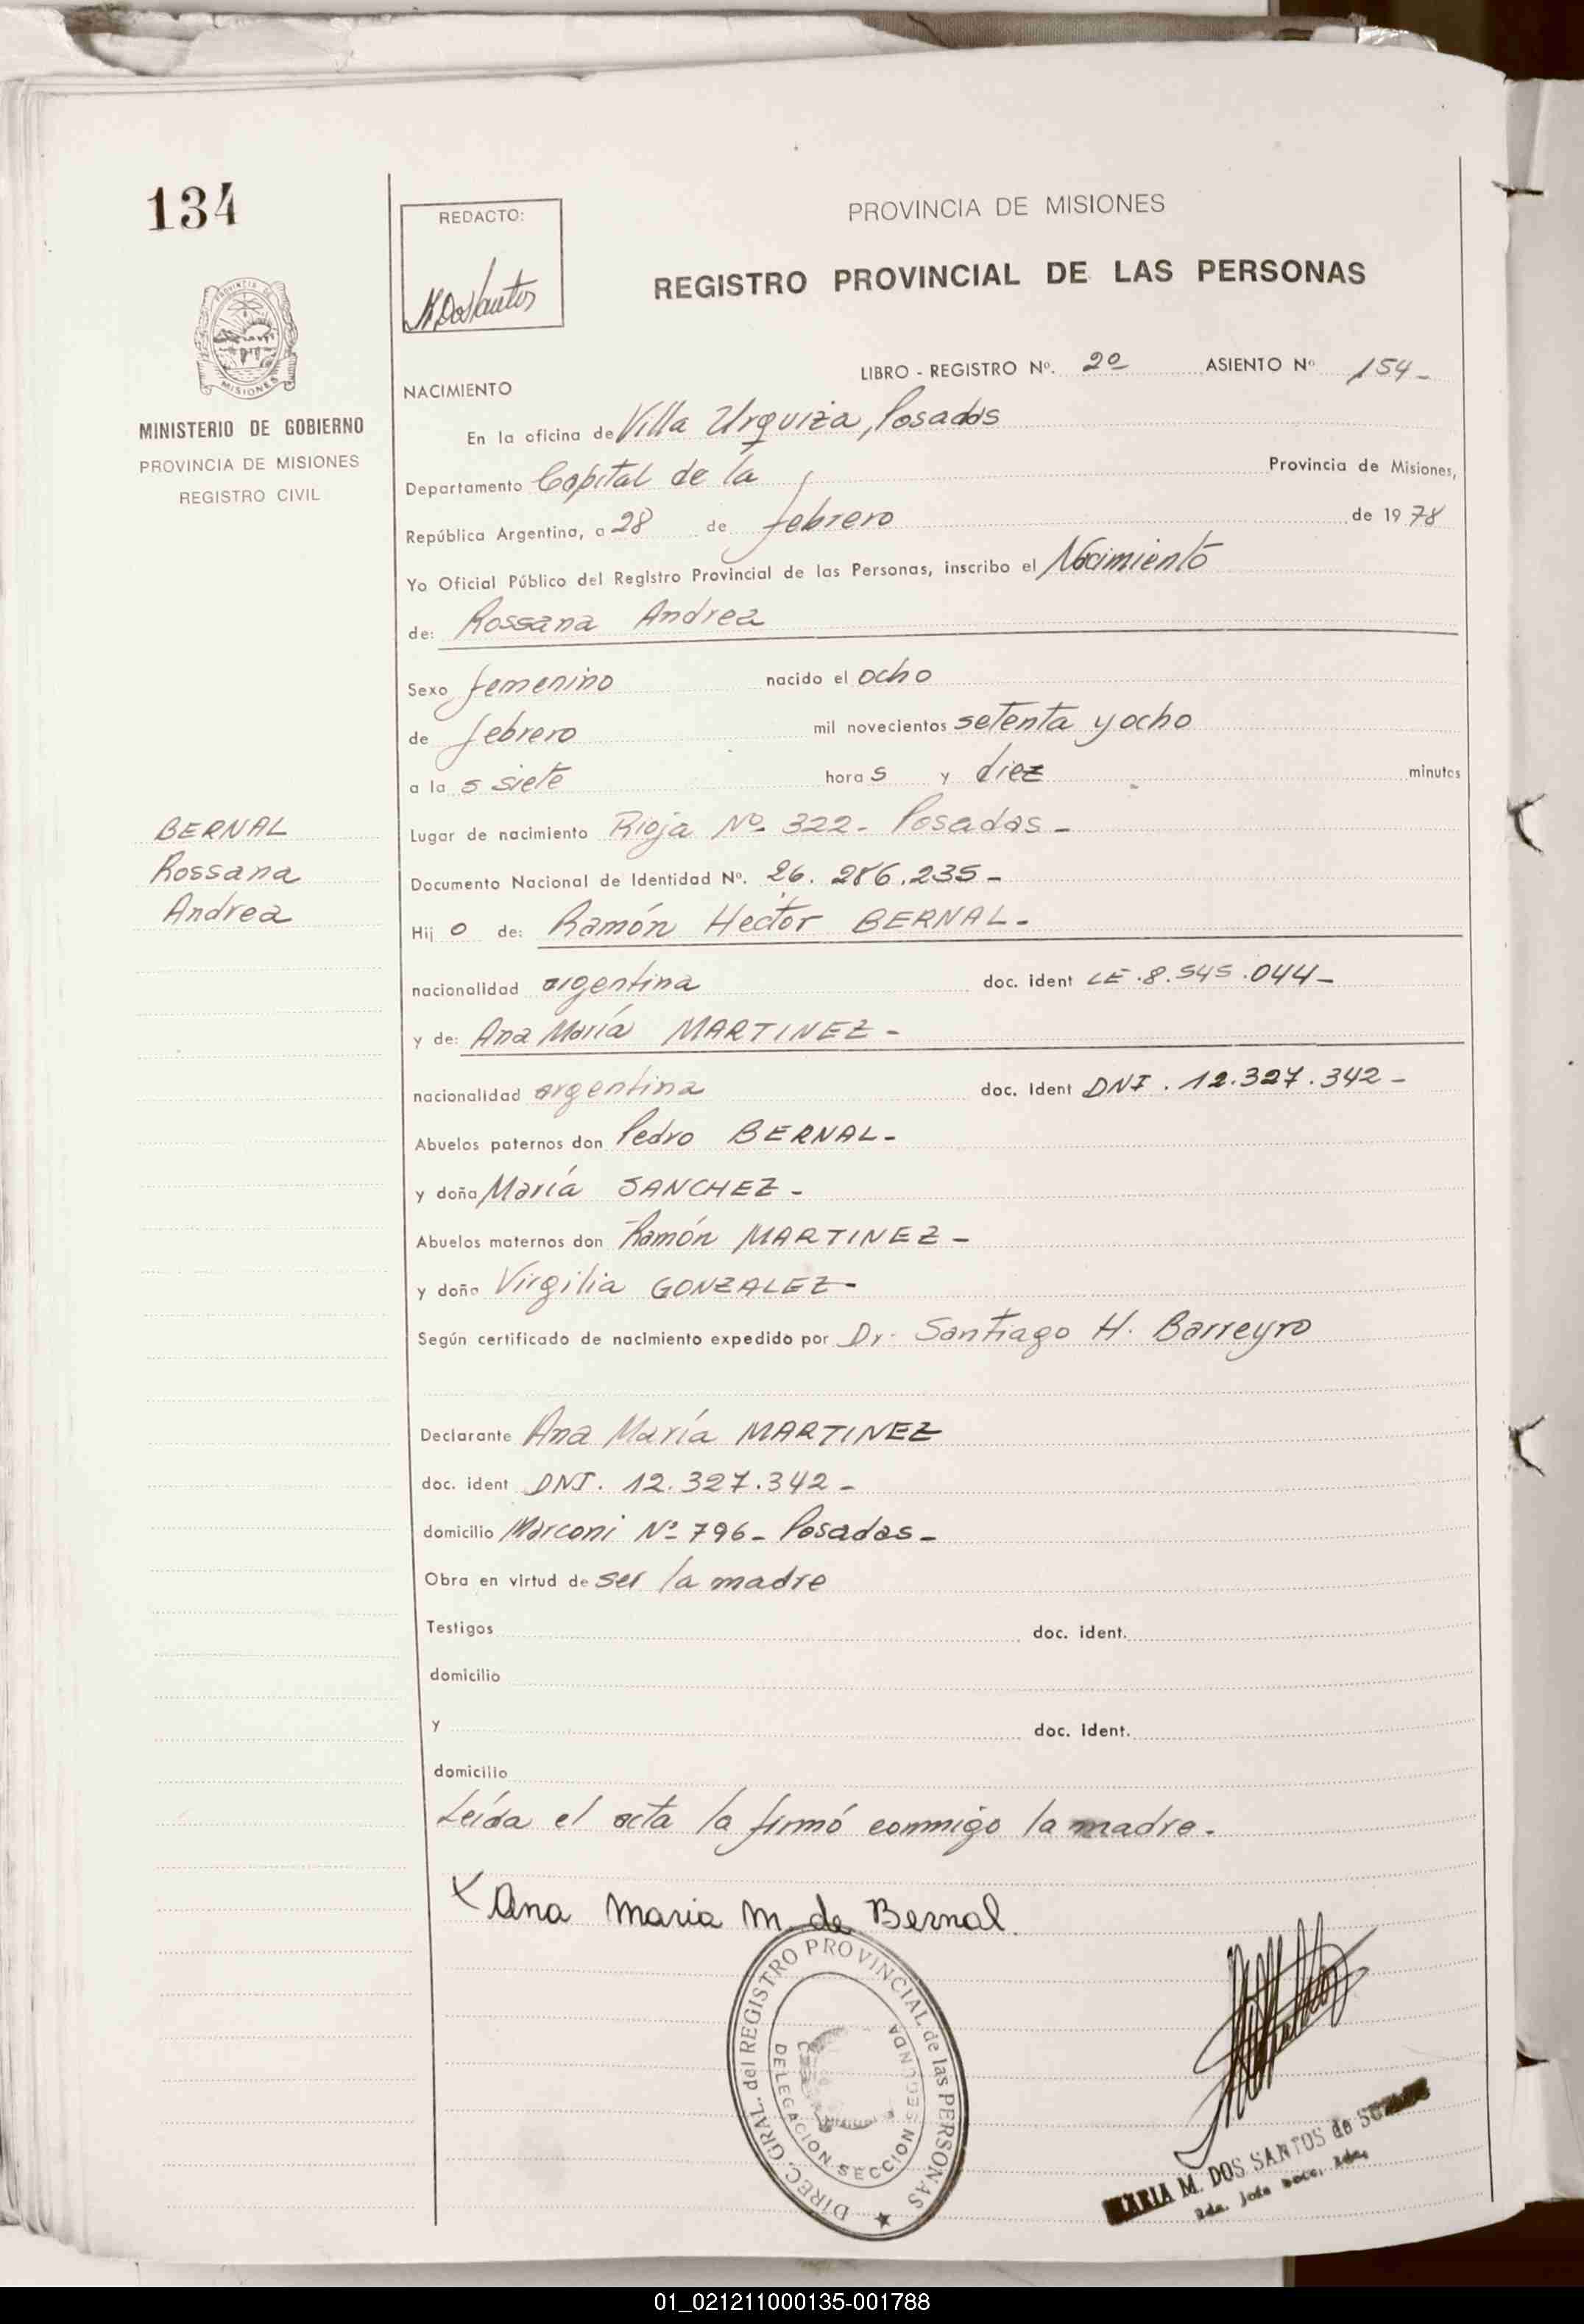 134
REDACTO:
PROVINCIA DE MISIONES
REGISTRO PROVINCIAL DE LAS PERSONAS
PROVINCIA DE
MISIONES
MINISTERIO DE GOBIERNO
PROVINCIA DE MISIONES
REGISTRO CIVIL
LIBRO - REGISTRO Nº. 2º ASIENTO Nº 154-
NACIMIENTO
En la oficina de Villa Urquiza, Posadas
Departamento Capital de la Provincia de Misiones,
República Argentina, a 28 de febrero de 1978
Yo Oficial Público del Registro Provincial de las Personas, inscribo el Nacimiento
de: Rossana Andrea
Sexo femenino nacido el ocho
de febrero mil novecientos setenta y ocho
a la s siete hora s y diez minutos
BERNAL
Rossana
Andrea
Lugar de nacimiento Rioja Nº 322- Posadas-
Documento Nacional de Identidad Nº. 26.286.235-
Hij o de: Ramón Hector BERNAL-
nacionalidad argentina doc. ident LE.8.545.044-
y de: Ana María MARTINEZ-
nacionalidad argentina doc. Ident DNI. 12.327.342-
Abuelos paternos don Pedro BERNAL-
y doña María SANCHEZ-
Abuelos maternos don Ramón MARTINEZ-
y doña Virgilia GONZALEZ-
Según certificado de nacimiento expedido por Dr. Santiago H. Barreyro
Declarante Ana María MARTINEZ
doc. ident DNI. 12.327.342-
domicilio Marconi Nº 796- Posadas-
Obra en virtud de ser la madre
Testigos doc. ident.
domicilio
y doc. Ident.
domicilio
Leída el acta la firmó conmigo la madre.
X Ana maria m. de Bernal.
DIREC. GRAL. del REGISTRO PROVINCIAL de las PERSONAS
DELEGACION SECCION SEGUNDA
MARIA M. DOS SANTOS de
01_021211000135-001788